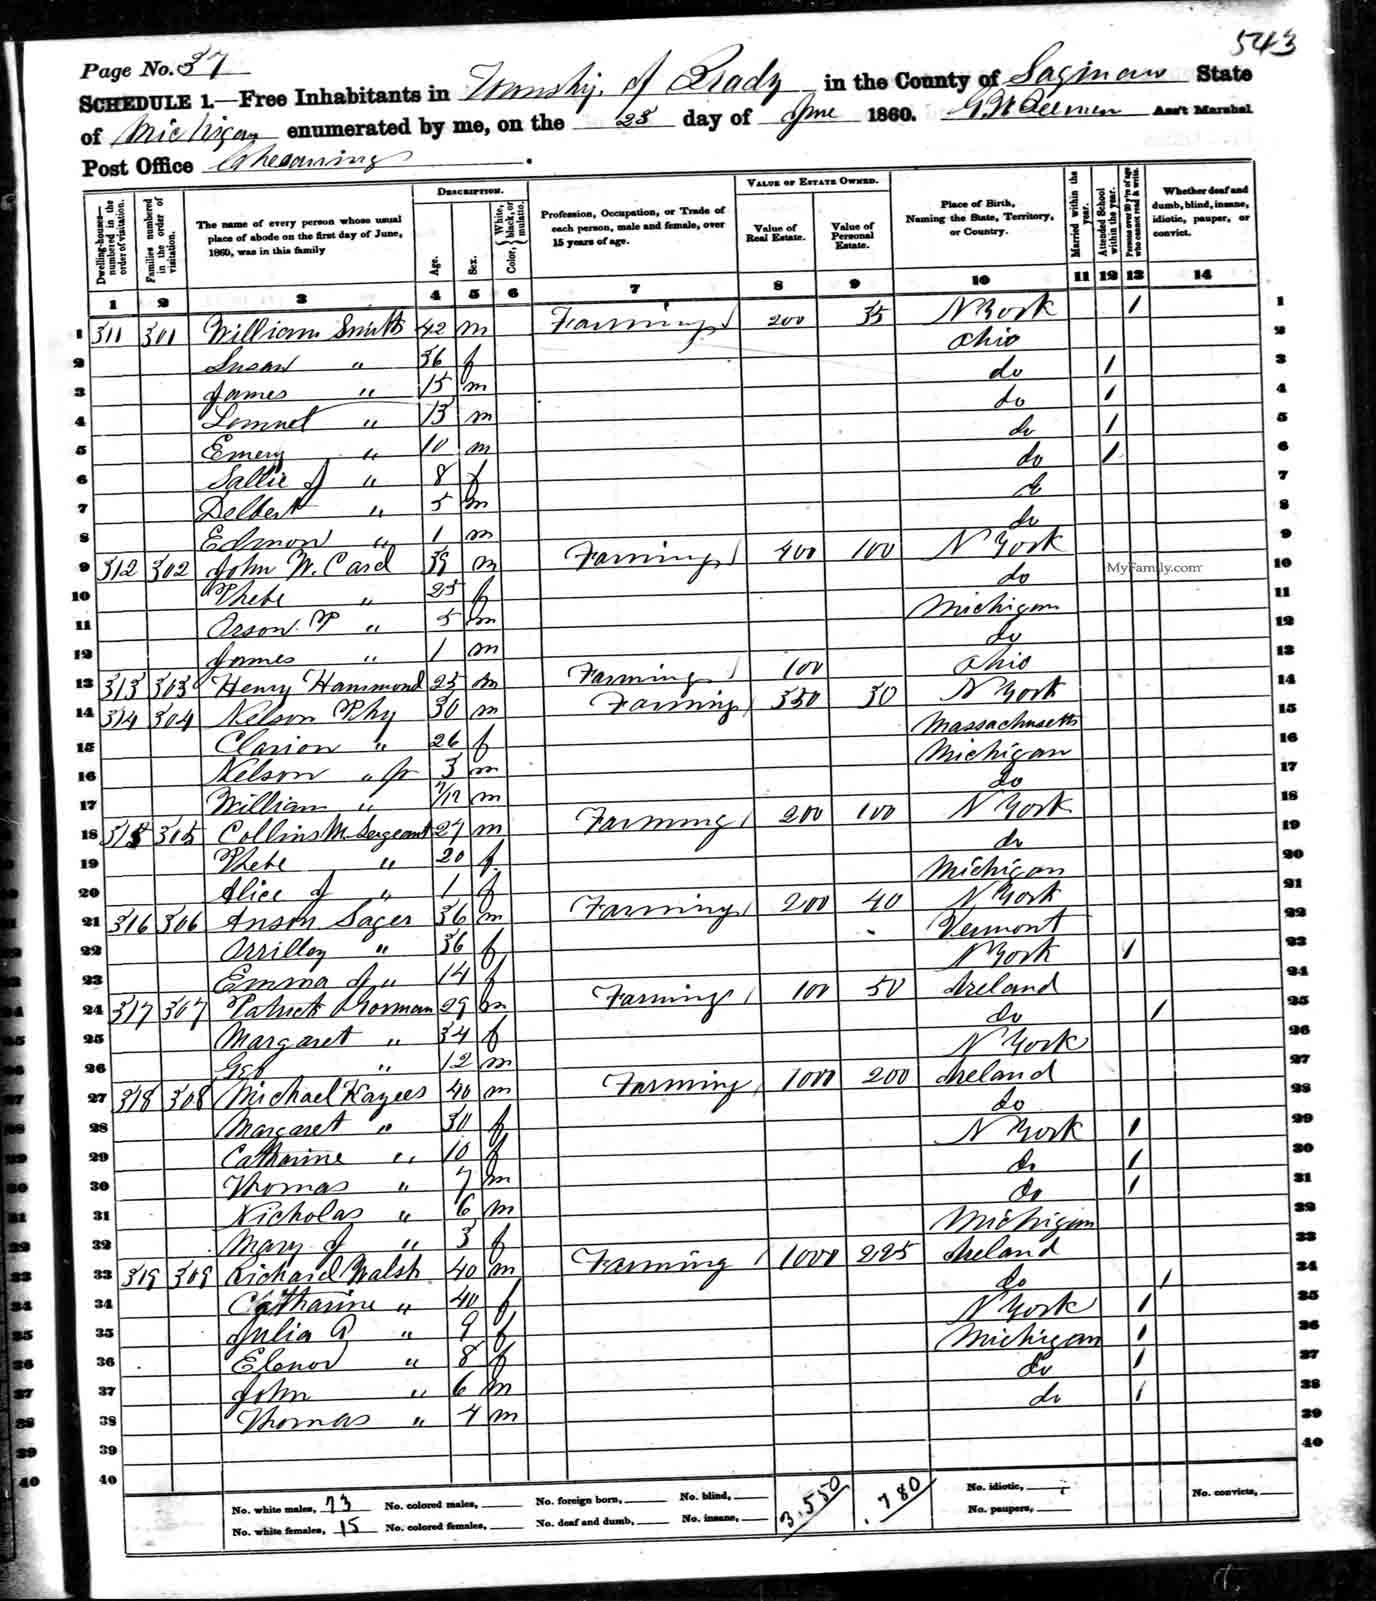 543
Page No. 37
SCHEDULE 1.—Free Inhabitants in Township of Brady in the County of Saginaw State
of Michigan enumerated by me, on the 25 day of June 1860. Ass't Marshal
Post Office Chesaning .
DESCRIPTION. VALUE OF ESTATE OWNED.
Dwelling-houses—numbered in the order of visitation. Families numbered in the order of visitation. The name of every person whose usual place of abode on the first day of June, 1860, was in this family Age. Sex. Color, White, black, or mulatto. Profession, Occupation, or Trade of each person, male and female, over 15 years of age. Value of Real Estate. Value of Personal Estate. Place of Birth, Naming the State, Territory, or Country. Married within the year. Attended School within the year. Persons over 20 y'rs of age who cannot read & write. Whether deaf and dumb, blind, insane, idiotic, pauper, or convict.
1 2 3 4 5 6 7 8 9 10 11 12 13 14
1 311 301 William Smith 42 m Farming 200 35 N York 1 1
2 Susan " 36 f Ohio 2
3 James " 15 m do 1 3
4 Lemuel " 13 m do 1 4
5 Emery " 10 m do 1 5
6 Sallie J " 8 f do 1 6
7 Delbert " 5 m do 7
8 Edmon " 1 m do 8
9 312 302 John W. Card 39 m Farming 400 100 N York 9
MyFamily.com
10 Phebe " 25 f do 10
11 Orson P " 5 m Michigan 11
12 James " 1 m do 12
13 313 303 Henry Hammond 25 m Farming 100 Ohio 13
14 314 304 Nelson Phy 30 m Farming 350 30 N York 14
15 Clarion " 26 f Massachusetts 15
16 Nelson " Jr 3 m Michigan 16
17 William " 7/12 m do 17
18 315 305 Collins M Sergeant 27 m Farming 200 100 N York 18
19 Phebe " 20 f do 19
20 Alice J " 1 f Michigan 20
21 316 306 Anson Sager 36 m Farming 200 40 N York 21
22 Orrilloy " 36 f Vermont 22
23 Emma J " 14 f N York 1 23
24 317 307 Patrick Gorman 29 m Farming 100 50 Ireland 24
25 Margaret " 34 f do 1 25
26 Geo " 12 m N York 26
27 318 308 Michael Kayees 40 m Farming 1000 200 Ireland 27
28 Margaret " 30 f do 28
29 Catharine " 10 f N York 1 29
30 Thomas " 7 m do 1 30
31 Nicholas " 6 m do 1 31
32 Mary J " 3 f Michigan 32
33 319 309 Richard Walsh 40 m Farming 1000 225 Ireland 33
34 Catharine " 40 f do 1 34
35 Julia A " 9 f N York 1 35
36 Elenor " 8 f Michigan 1 36
37 John " 6 m do 1 37
38 Thomas " 4 m do 1 38
39 39
40 40
No. white males, 23 No. colored males, No. foreign born, No. blind, 3,550 .780 No. idiotic, No. convicts,
No. white females, 15 No. colored females, No. deaf and dumb, No. insane, No. paupers,